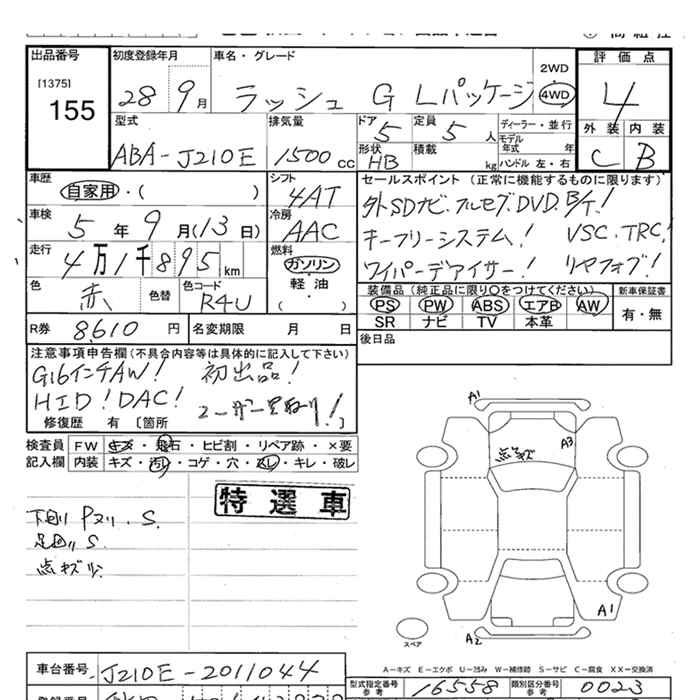 出品番号
[1375]
155
初度登録年月
28 9月
車名・グレード
ラッシュ G Lパッケージ
2WD
4WD
評価点
4
外装 内装
C B
型式
ABA-J210E
排気量
1500 cc
ドア
5
定員
5 人
ディーラー・並行
モデル
年式 年
形状
HB
積載
kg
ハンドル 左・右
車歴
自家用・( )
シフト
4AT
セールスポイント (正常に機能するものに限ります)
外SDナビ.フルセグ.DVD.B/T!
キーフリーシステム! VSC.TRC!
ワイパーデアイサー! リヤフォグ!
車検
5年 9月(13日)
冷房
AAC
走行
4万1千895km
燃料
ガソリン
軽油
( )
色
赤
色替
色コード
R4U
装備品(純正品に限り〇をつけてください)
PS PW ABS エアB AW
SR ナビ TV 本革
新車保証書
有・無
R券 8,610 円
名変期限 月 日
後日品
注意事項申告欄(不具合内容等は具体的に記入して下さい)
G16インチAW! 初出品!
HID! DAC! ユーザー買取り!
修復歴 有 [箇所 ]
検査員
記入欄
FW キズ・飛石・ヒビ割・リペア跡・×要
内装 キズ・汚れ・コゲ・穴・スレ・キレ・破レ
特選車
下回リ Pヌリ.S.
足回リ S.
点キズ少
A1
A3
点キズ
A1
A2
スペア
A-キズ E-エクボ U-凹み W-補修跡 S-サビ C-腐食 XX-交換済
車台番号
J210E-2011044
型式指定番号
参考
16558
類別区分番号
参考
0023